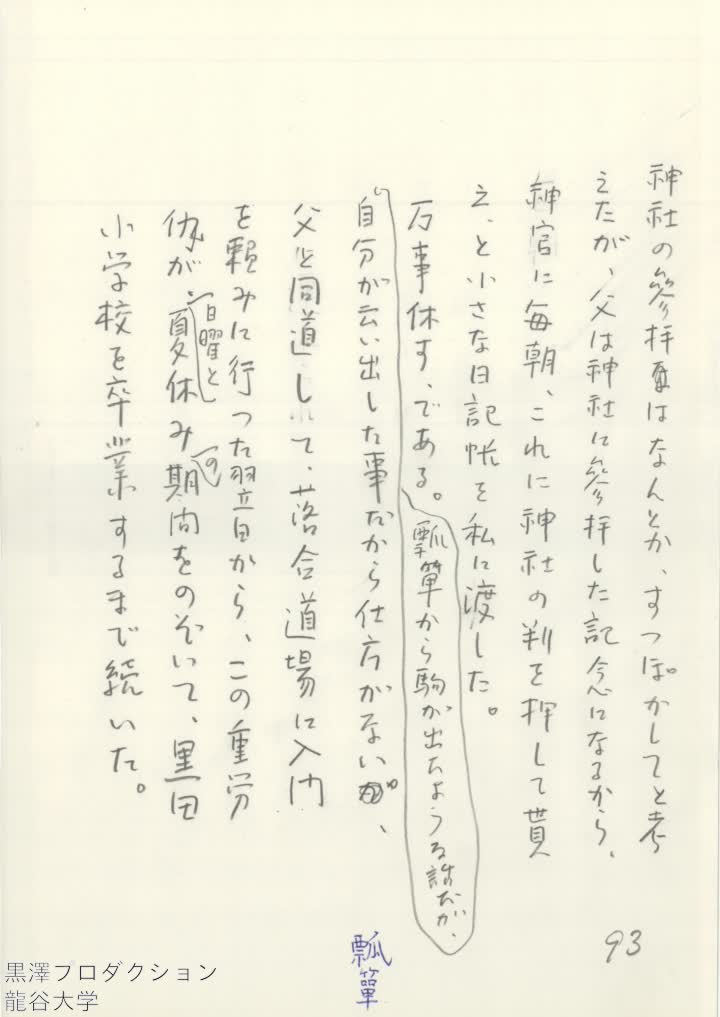 神社の参拝はなんとか、すつぽかしてと考
えたが、父は神社に参拝した記念になるから、
神官に毎朝、これに神社の判を押して貰
え、と小さな日記帳を私に渡した。
万事休す、である。
瓢箪から駒が出たようる話だが、
自分が云い出した事だから仕方がない、
父と同道して、落合道場に入門
を頼みに行つた翌日から、この重労
働が、日曜と夏休みの期間をのぞいて、黒田
小学校を卒業するまで続いた。
93
瓢箪
黒澤プロダクション
龍谷大学